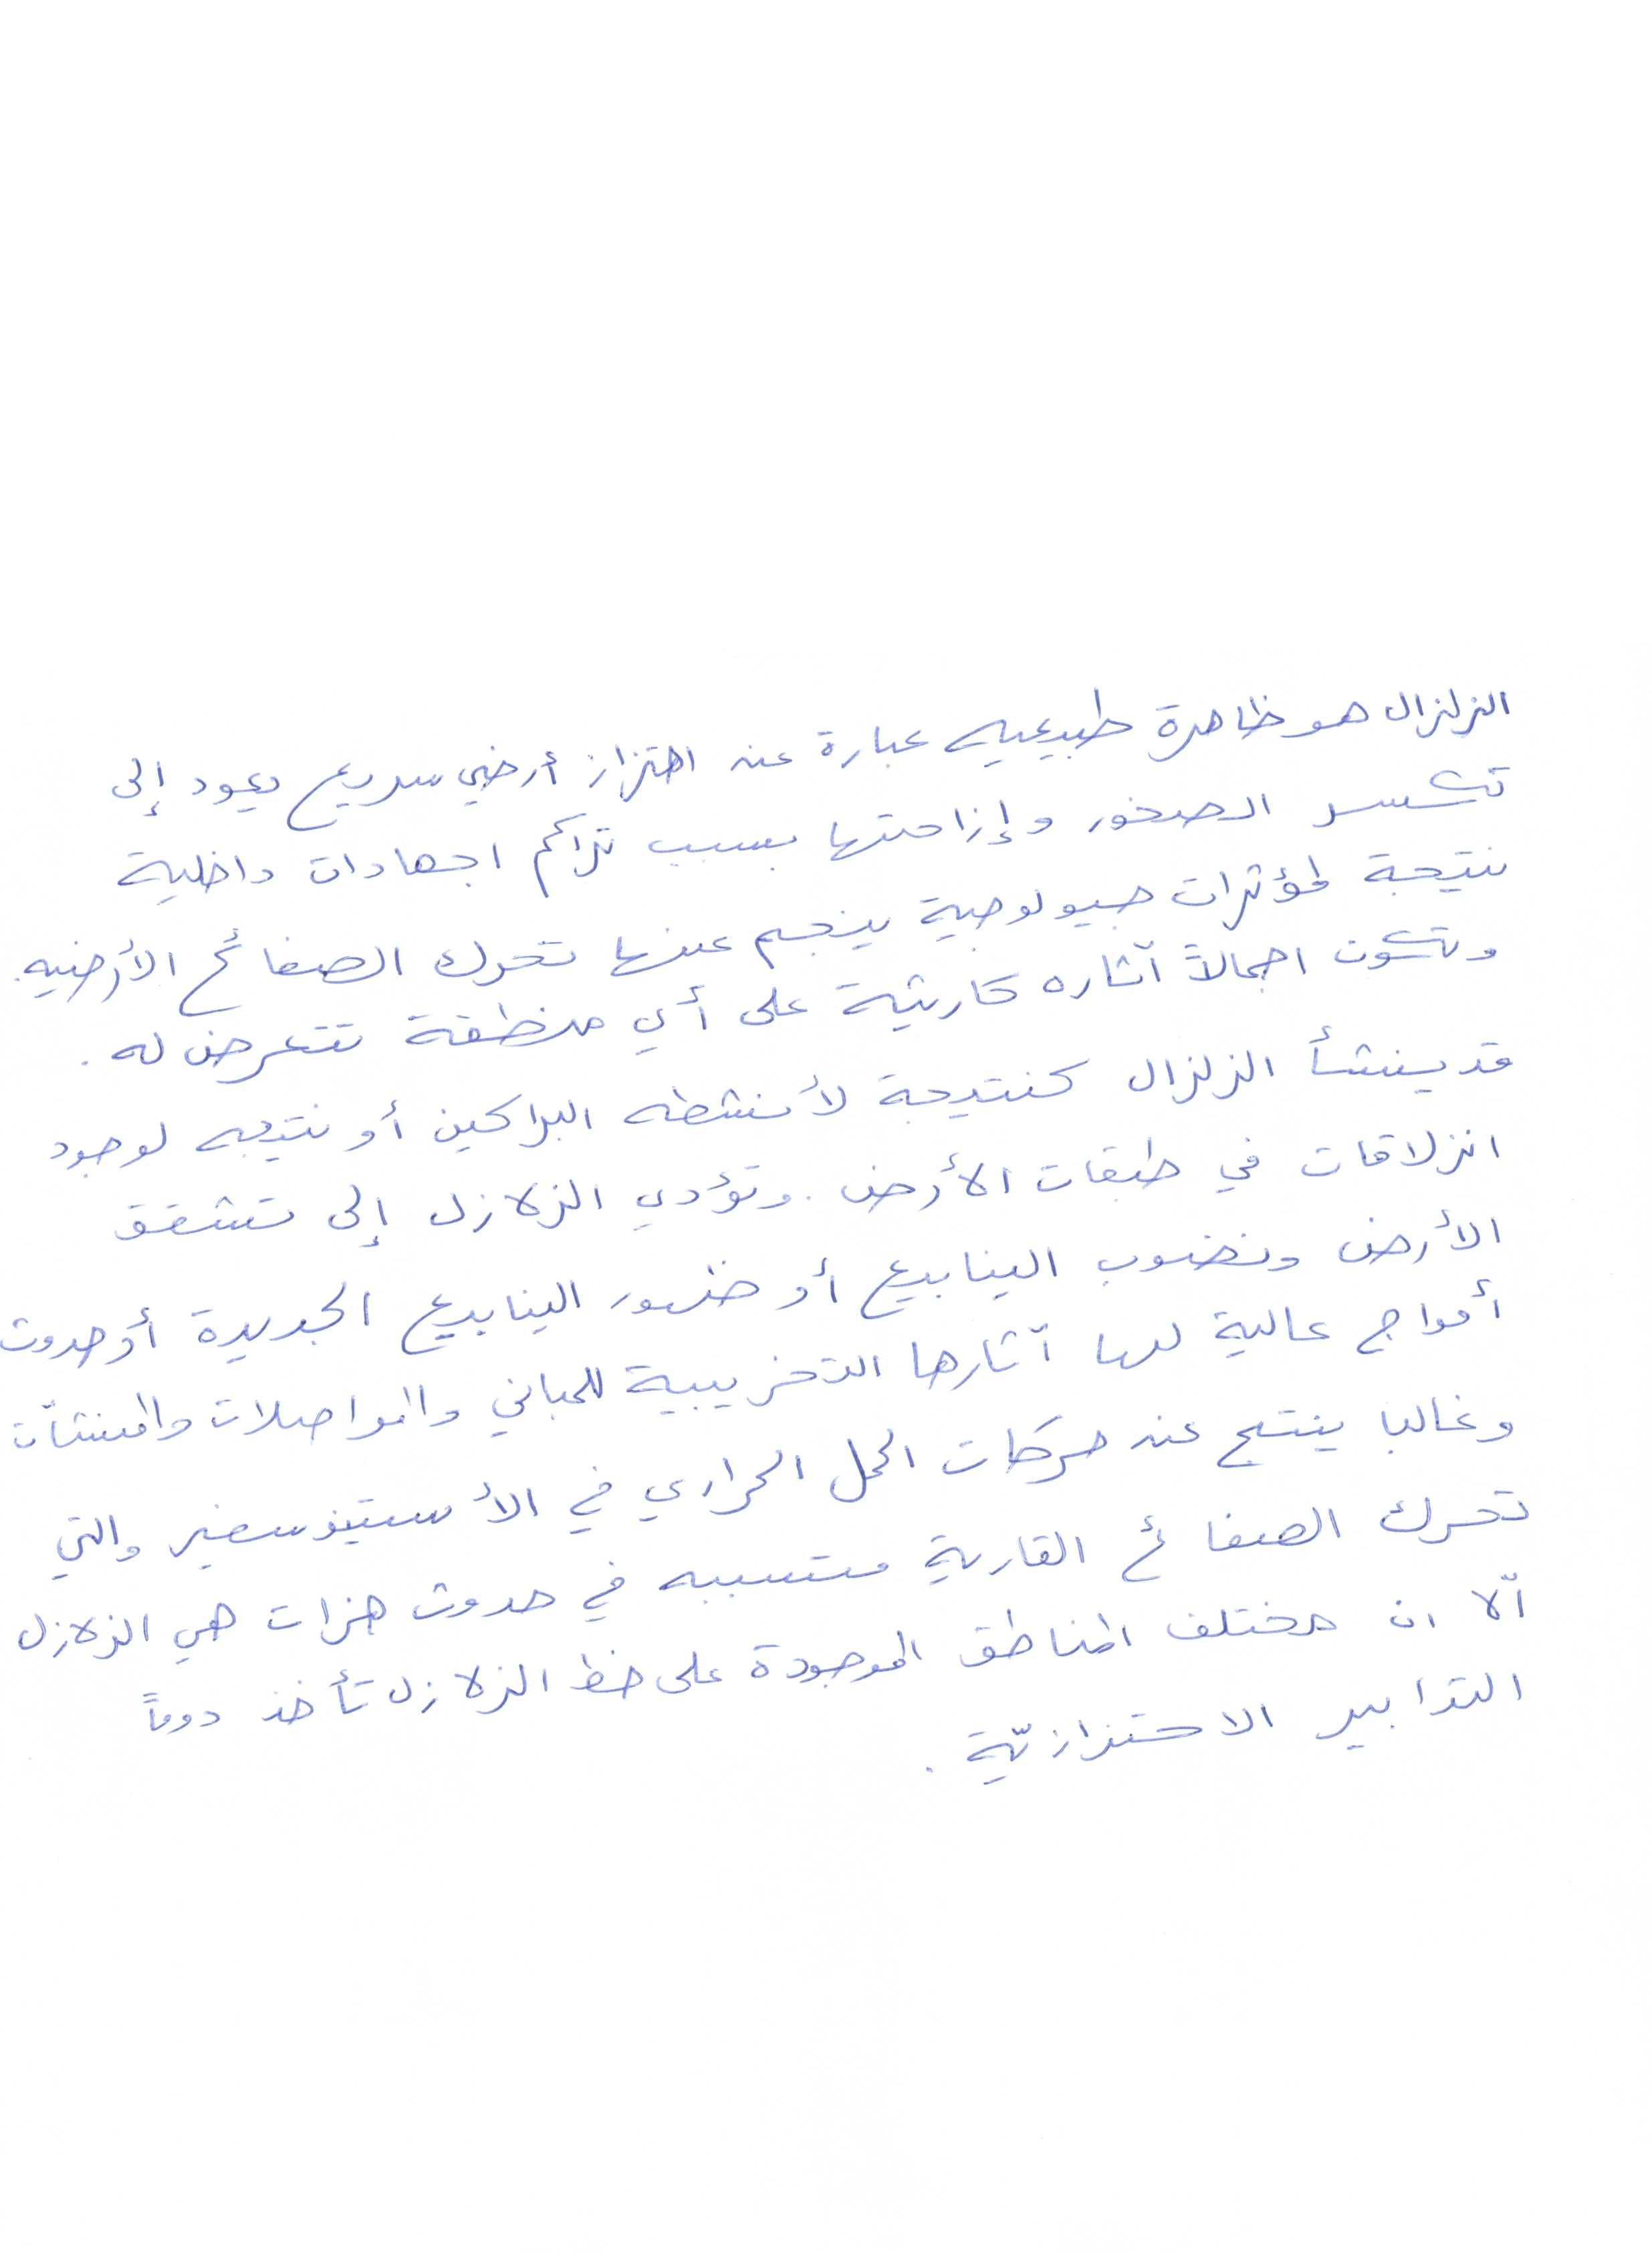 الزلزال هو ظاهرة طبيعيه عبارة عن اهتزاز أرضي سريع يعود إلى
تكسر الصخور وإزاحتها بسبب تراكم اجهادات داخلية
نتيجة لمؤثرات جيولوجية ينجم عنها تحرك الصفائح الأرضيه.
وتكون اجمالاً آثاره كارثية على أي منطقة تتعرض له .
قد ينشأ الزلزال كنتيجة لأنشطه البراكين أو نتيجه لوجود
انزلاقات في طبقات الأرض . وتؤدي الزلازل إلى تشقق
الأرض ونضوب الينابيع أو ظهور الينابيع الجديدة أو حدوث
أمواج عالية لها آثارها التخريبية للمباني والمواصلات والمنشآت
وغالبا ينتج عن حركات الحمل الحراري في الأستينوسفير والتي
تحرك الصفائح القارية متسببه في حدوث هزات هي الزلازل
الّا ان مختلف المناطق الموجودة على خط الزلازل تأخذ دوماً
التدابير الاحترازيّة .